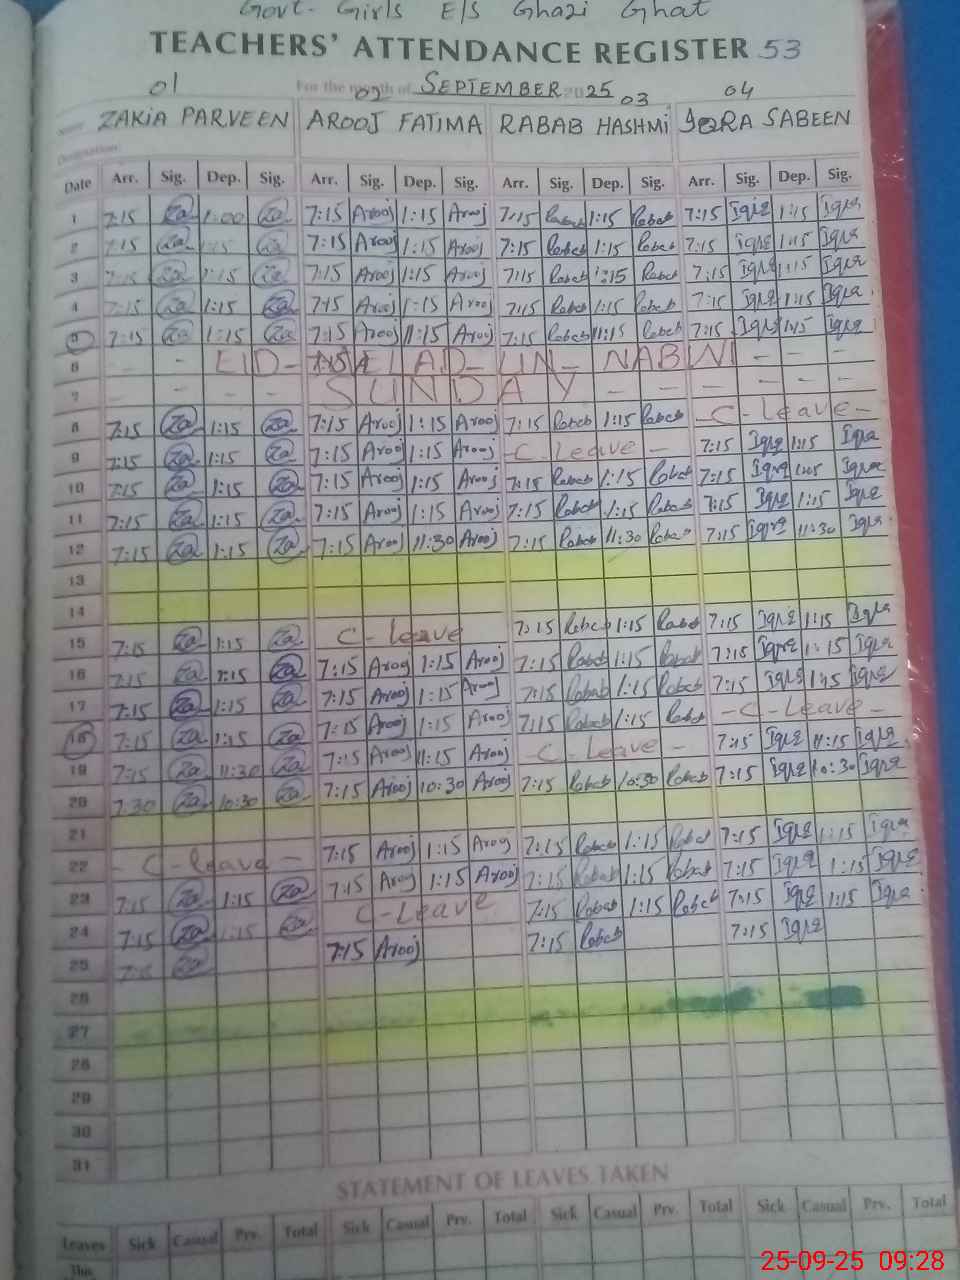 Govt. Girls E/S Ghazi Ghat
TEACHERS' ATTENDANCE REGISTER 53
For the month of SEPTEMBER 2025
01 02 03 04
Name ZAKIA PARVEEN AROOJ FATIMA RABAB HASHMI IQRA SABEEN
Designation
Date Arr. Sig. Dep. Sig. Arr. Sig. Dep. Sig. Arr. Sig. Dep. Sig. Arr. Sig. Dep. Sig.
1 7:15 Za 1:00 Za 7:15 Arooj 1:15 Arooj 7:15 Rabab 1:15 Rabab 7:15 Iqra 1:15 Iqra
2 7:15 Za Za 7:15 Arooj 1:15 Arooj 7:15 Rabab 1:15 Rabab 7:15 Iqra 1:15 Iqra
3 7:15 Za 1:15 Za 7:15 Arooj 1:15 Arooj 7:15 Rabab 1:15 Rabab 7:15 Iqra 1:15 Iqra
4 7:15 Za 1:15 Za 7:15 Arooj 1:15 Arooj 7:15 Rabab 1:15 Rabab 7:15 Iqra 1:15 Iqra
5 7:15 Za 1:15 Za 7:15 Arooj 1:15 Arooj 7:15 Rabab 1:15 Rabab 7:15 Iqra 1:15 Iqra
6 - - EID - MILAD - UN - NABWI - - -
7 - - - SUNDAY - - - - -
8 7:15 Za 1:15 Za 7:15 Arooj 1:15 Arooj 7:15 Rabab 1:15 Rabab - C - Leave -
9 7:15 Za 1:15 Za 7:15 Arooj 1:15 Arooj - C - Leave - 7:15 Iqra 1:15 Iqra
10 7:15 Za 1:15 Za 7:15 Arooj 1:15 Arooj 7:15 Rabab 1:15 Rabab 7:15 Iqra 1:15 Iqra
11 7:15 Za 1:15 Za 7:15 Arooj 1:15 Arooj 7:15 Rabab 1:15 Rabab 7:15 Iqra 1:15 Iqra
12 7:15 Za 1:15 Za 7:15 Arooj 11:30 Arooj 7:15 Rabab 11:30 Rabab 7:15 Iqra 11:30 Iqra
13
14
15 7:15 Za 1:15 Za C - Leave 7:15 Rabab 1:15 Rabab 7:15 Iqra 1:15 Iqra
16 7:15 Za 1:15 Za 7:15 Arooj 1:15 Arooj 7:15 Rabab 1:15 Rabab 7:15 Iqra 1:15 Iqra
17 7:15 Za 1:15 Za 7:15 Arooj 1:15 Arooj 7:15 Rabab 1:15 Rabab 7:15 Iqra 1:15 Iqra
18 7:15 Za 1:15 Za 7:15 Arooj 1:15 Arooj 7:15 Rabab 1:15 Rabab - C - Leave -
19 7:15 Za 11:30 Za 7:15 Arooj 11:15 Arooj - C - Leave - 7:15 Iqra 11:15 Iqra
20 7:30 Za 10:30 Za 7:15 Arooj 10:30 Arooj 7:15 Rabab 10:30 Rabab 7:15 Iqra 10:30 Iqra
21
22 - C - Leave - 7:15 Arooj 1:15 Arooj 7:15 Rabab 1:15 Rabab 7:15 Iqra 1:15 Iqra
23 7:15 Za 1:15 Za 7:15 Arooj 1:15 Arooj 7:15 Rabab 1:15 Rabab 7:15 Iqra 1:15 Iqra
24 7:15 Za 1:15 Za C - Leave 7:15 Rabab 1:15 Rabab 7:15 Iqra 1:15 Iqra
25 7:15 Za 7:15 Arooj 7:15 Rabab 7:15 Iqra
26
27
28
29
30
31
STATEMENT OF LEAVES TAKEN
Leaves Sick Casual Prv. Total Sick Casual Prv. Total Sick Casual Prv. Total Sick Casual Prv. Total
This
25-09-25 09:28